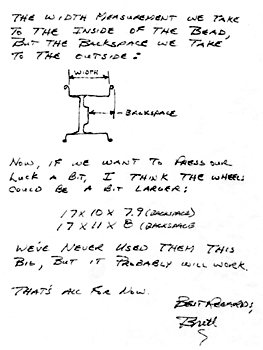 THE WIDTH MEASUREMENT WE TAKE
TO THE INSIDE OF THE BEAD,
BUT THE BACKSPACE WE TAKE
TO THE OUTSIDE:
WIDTH
BACKSPACE
NOW, IF WE WANT TO PRESS OUR
LUCK A BIT, I THINK THE WHEELS
COULD BE A BIT LARGER:
17 X 10 X 7.9 (BACKSPACE)
17 X 11 X 8 (BACKSPACE
WE'VE NEVER USED THEM THIS
BIG, BUT IT PROBABLY WILL WORK.
THAT'S ALL FOR NOW.
BEST REGARDS,